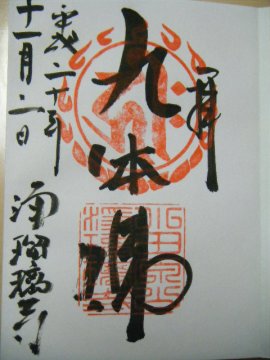 奉拝
九体佛
平成二十年
十一月二日
浄瑠璃寺